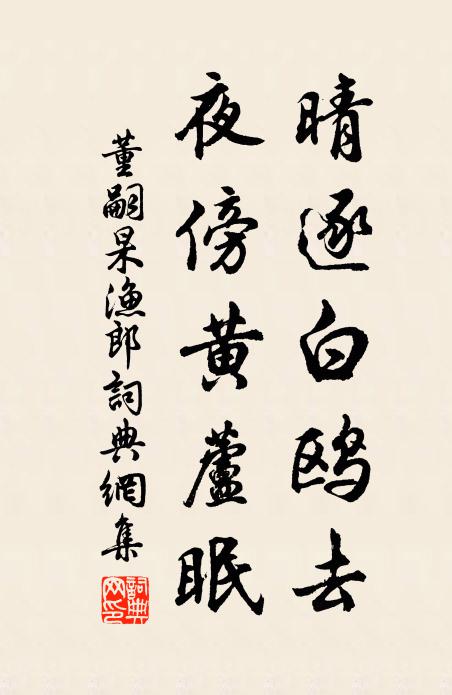 晴逐白鸥去
夜傍黄蘆眠
董嗣杲漁郎詞典網集
詞典网印